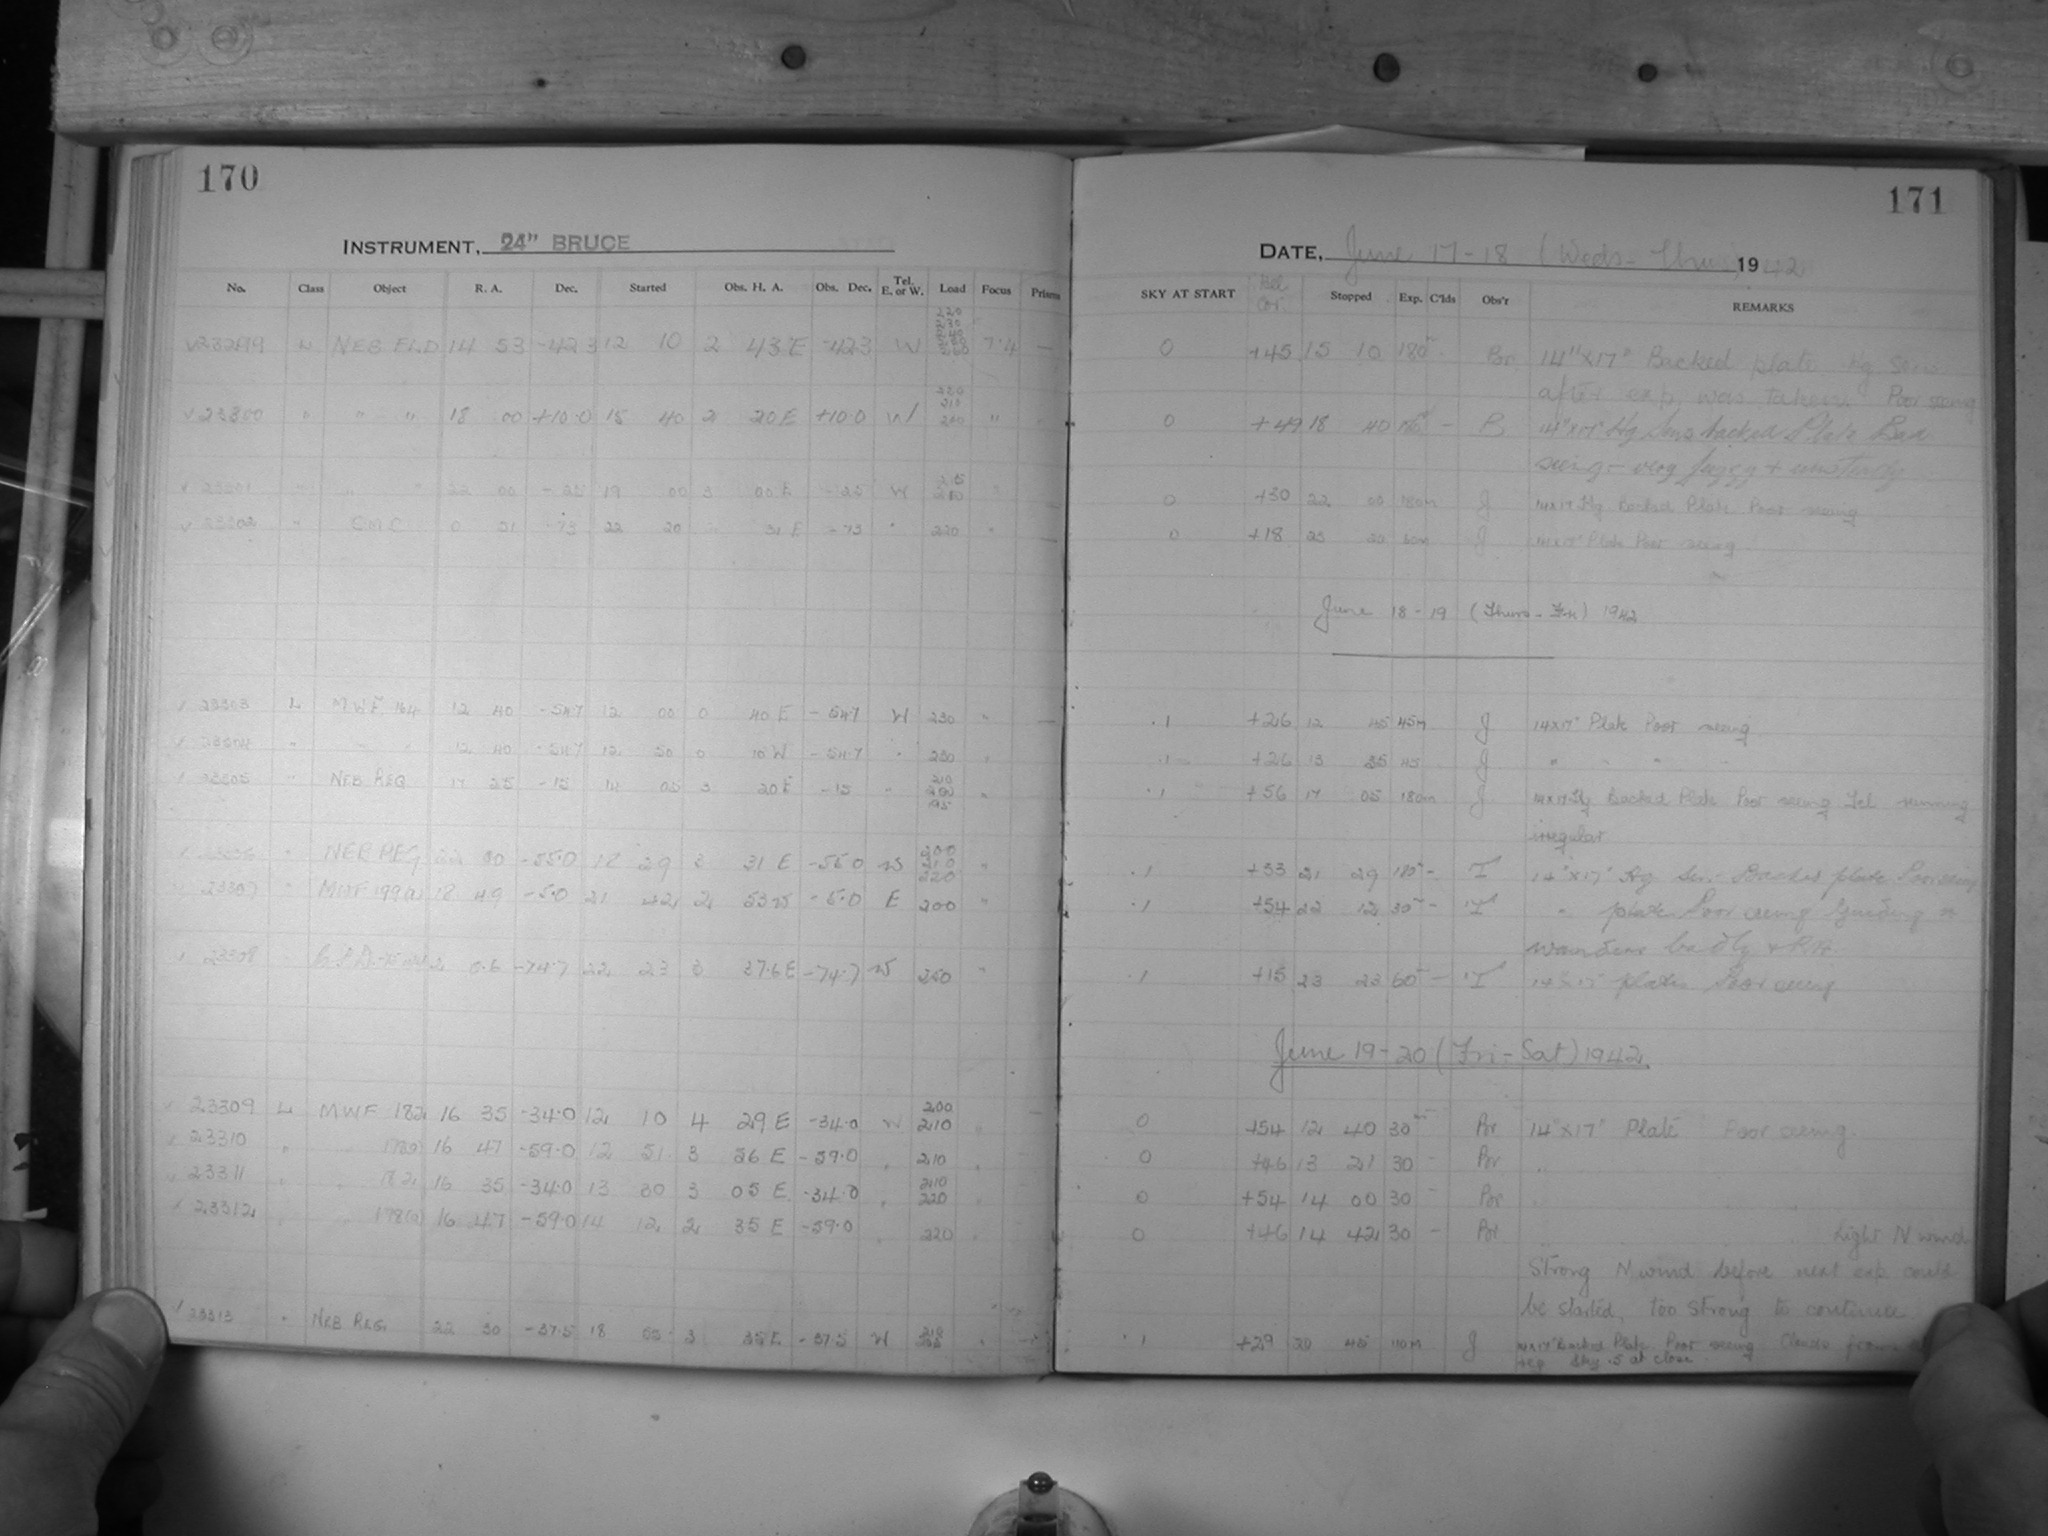 170
INSTRUMENT, 24" BRUCE
No. Class Object R. A. Dec. Started Obs. H. A. Obs. Dec. Tel. E. or W. Load Focus Prism
23299 L NEB FLD 14 53 -42.3 12 10 2 43 E -42.3 W 7.4 —
23300 " " " 18 00 +10.0 15 40 2 20 E +10.0 W "
23301 " " " 22 00 -25 19 00 3 00 E -25 W "
23302 " S.M.C 0 51 -73 22 20 " 31 E -73 " 220 "
23303 L MWF 164 12 40 -54.7 12 00 0 40 E -54.7 W 230 " —
23304 " " " 12 40 -54.7 12 50 0 10 W -54.7 " 230
23305 " NEB REG 17 25 -15 14 05 3 20 E -15 " 210 200 195 "
23306 " NEB REG 22 00 -55.0 18 29 3 31 E -55.0 W 200 210 220 "
23307 " MWF 199(a) 18 49 -5.0 21 42 2 53 W -5.0 E 200 "
23308 -74.7 22 23 3 37.6 E -74.7 W 250 "
23309 L MWF 182 16 35 -34.0 12 10 4 29 E -34.0 W 200 210
23310 " " 178(a) 16 47 -59.0 12 51 3 56 E -59.0 " 210
23311 " " 182 16 35 -34.0 13 30 3 05 E -34.0 " 210 220
23312 " " 178(a) 16 47 -59.0 14 12 2 35 E -59.0 " 220
23313 " NEB REG. 22 30 -37.5 18 55 3 35 E -37.5 W 210
171
DATE, June 17-18 (Weds-Thu) 1942
SKY AT START Hel Cor. Stopped Exp. C'lds Obs'r REMARKS
0 +45 15 10 180m Br 14"x17" Backed plate Hg Sens
after exp. was taken. Poor seeing
0 +49 18 40 180m — B 14"x17" Hg Sens backed Plate Bad
seeing - very fuzzy + unsteady
0 +30 22 00 180m J 14x17 Hg Backed Plate Poor seeing
0 +18 23 20 60m J 14x17" Plate Poor seeing
June 18-19 (Thurs-Fri) 1942
.1 +26 12 45 45m J 14x17" Plate Poor seeing
.1 +26 13 35 45 J " " " "
.1 +56 17 05 180m J 14x17 Hg Backed Plate Poor seeing Tel running
irregular
.1 +33 21 29 180m — T 14"x17" Hg Sen. Backed plate Poor seeing
.1 +54 22 12 30m — T " plate Poor seeing Guiding
wanders badly
.1 +15 23 23 60m — T 14"x17" plate Poor seeing
June 19-20 (Fri-Sat) 1942
0 +54 12 40 30m Br 14"x17" Plate Poor seeing
0 +46 13 21 30 — Br "
0 +54 14 00 30 — Br "
0 +46 14 42 30 — Br Light N wind
Strong N wind before next exp could
be started, too strong to continue
.1 +29 20 45 110m J 14x17 Backed Plate Poor seeing Clouds from
Sky .5 at close